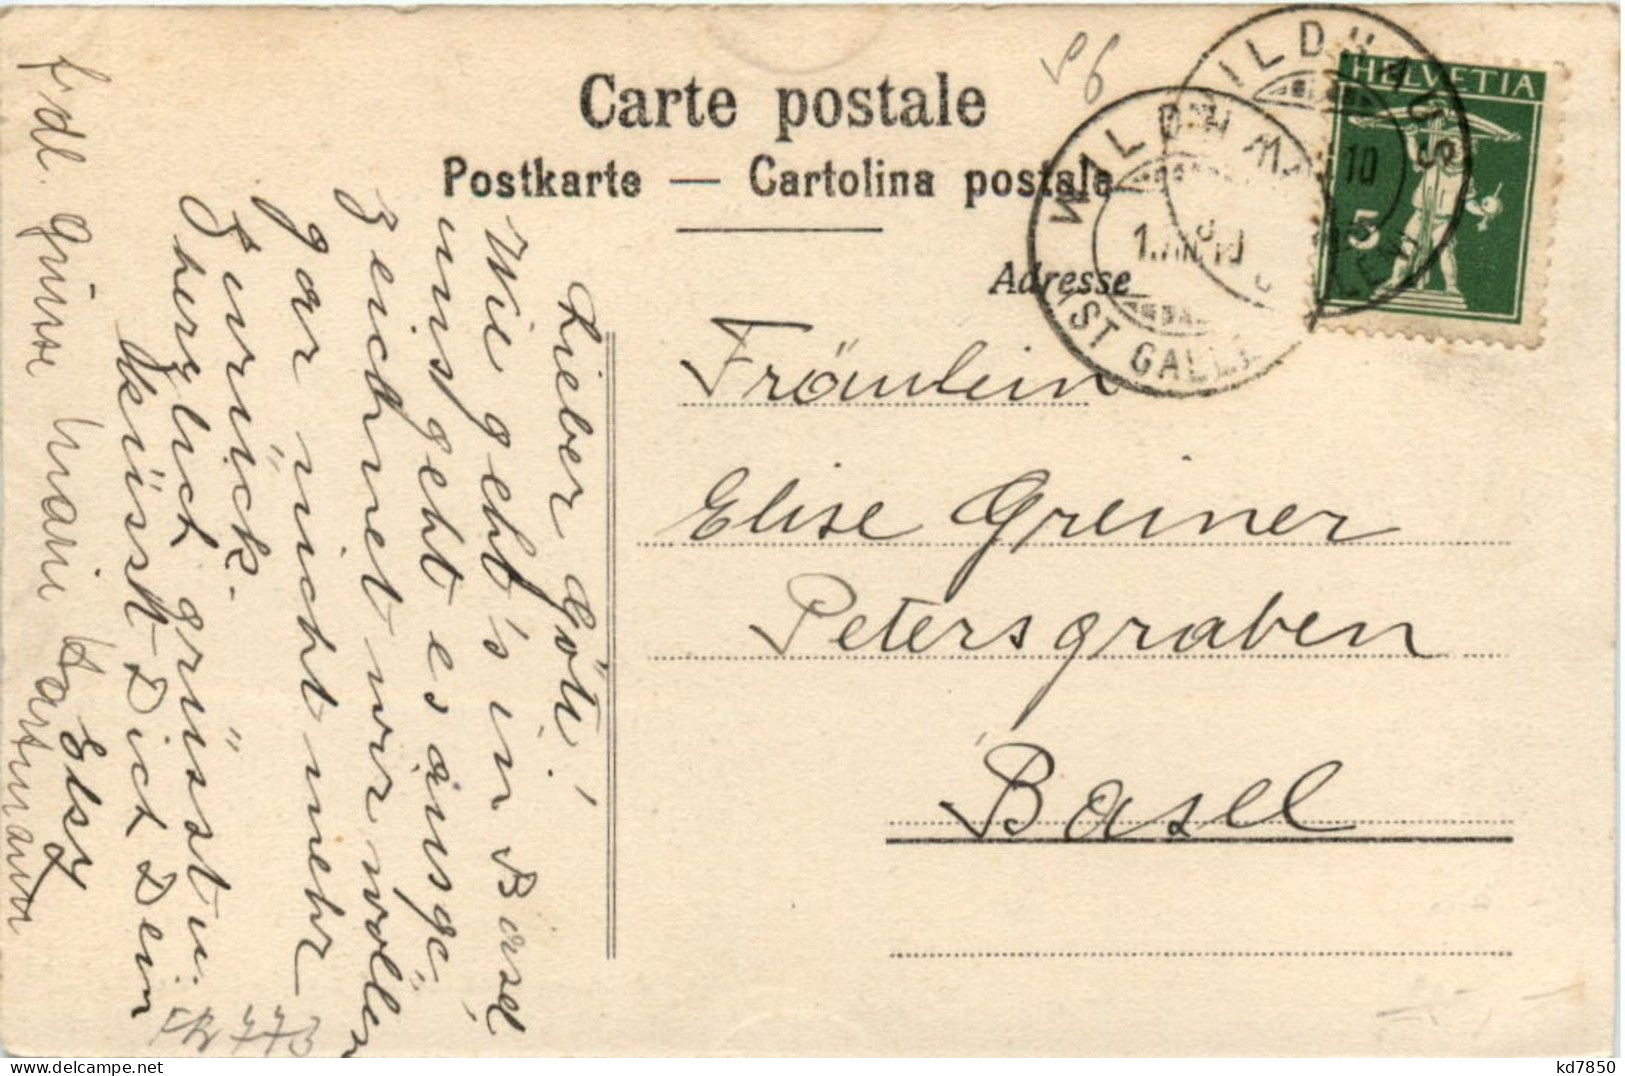 Carte postale
Postkarte — Cartolina postale
Adresse
HELVETIA
5
WILDHAUS
ST. GALLEN
10
Fräulein
Elise Greiner
Petersgraben
Basel
Lieber Göti!
Wie geht's in Basel,
uns geht es ausge
zeichnet wir wollen
gar nicht mehr
zurück.
Sherzlich grüsst u.
küsst Dich Dein
Elsy
frdl. Grüsse Marie Hartmann
773
kd7850